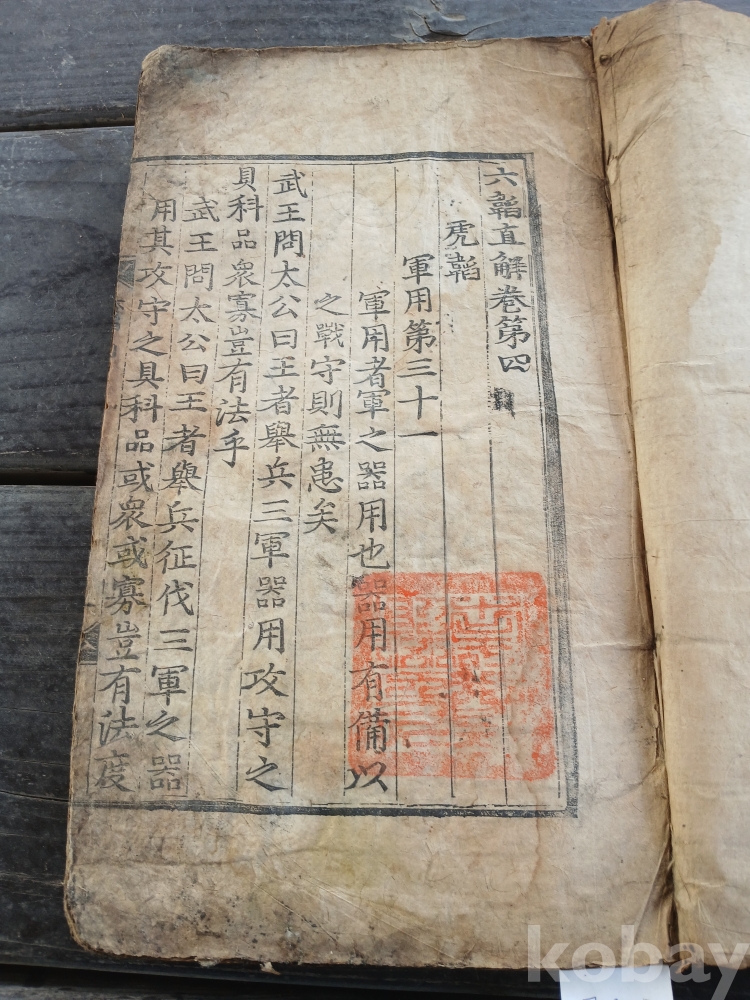 六韜直解卷第四
虎韜
軍用第三十一
軍用者軍之器用也器用有備以
之戰守則無患矣
武王問太公曰王者舉兵三軍器用攻守之
具科品衆寡豈有法乎
武王問太公曰王者舉兵征伐三軍之器
用其攻守之具科品或衆或寡豈有法度
kobay